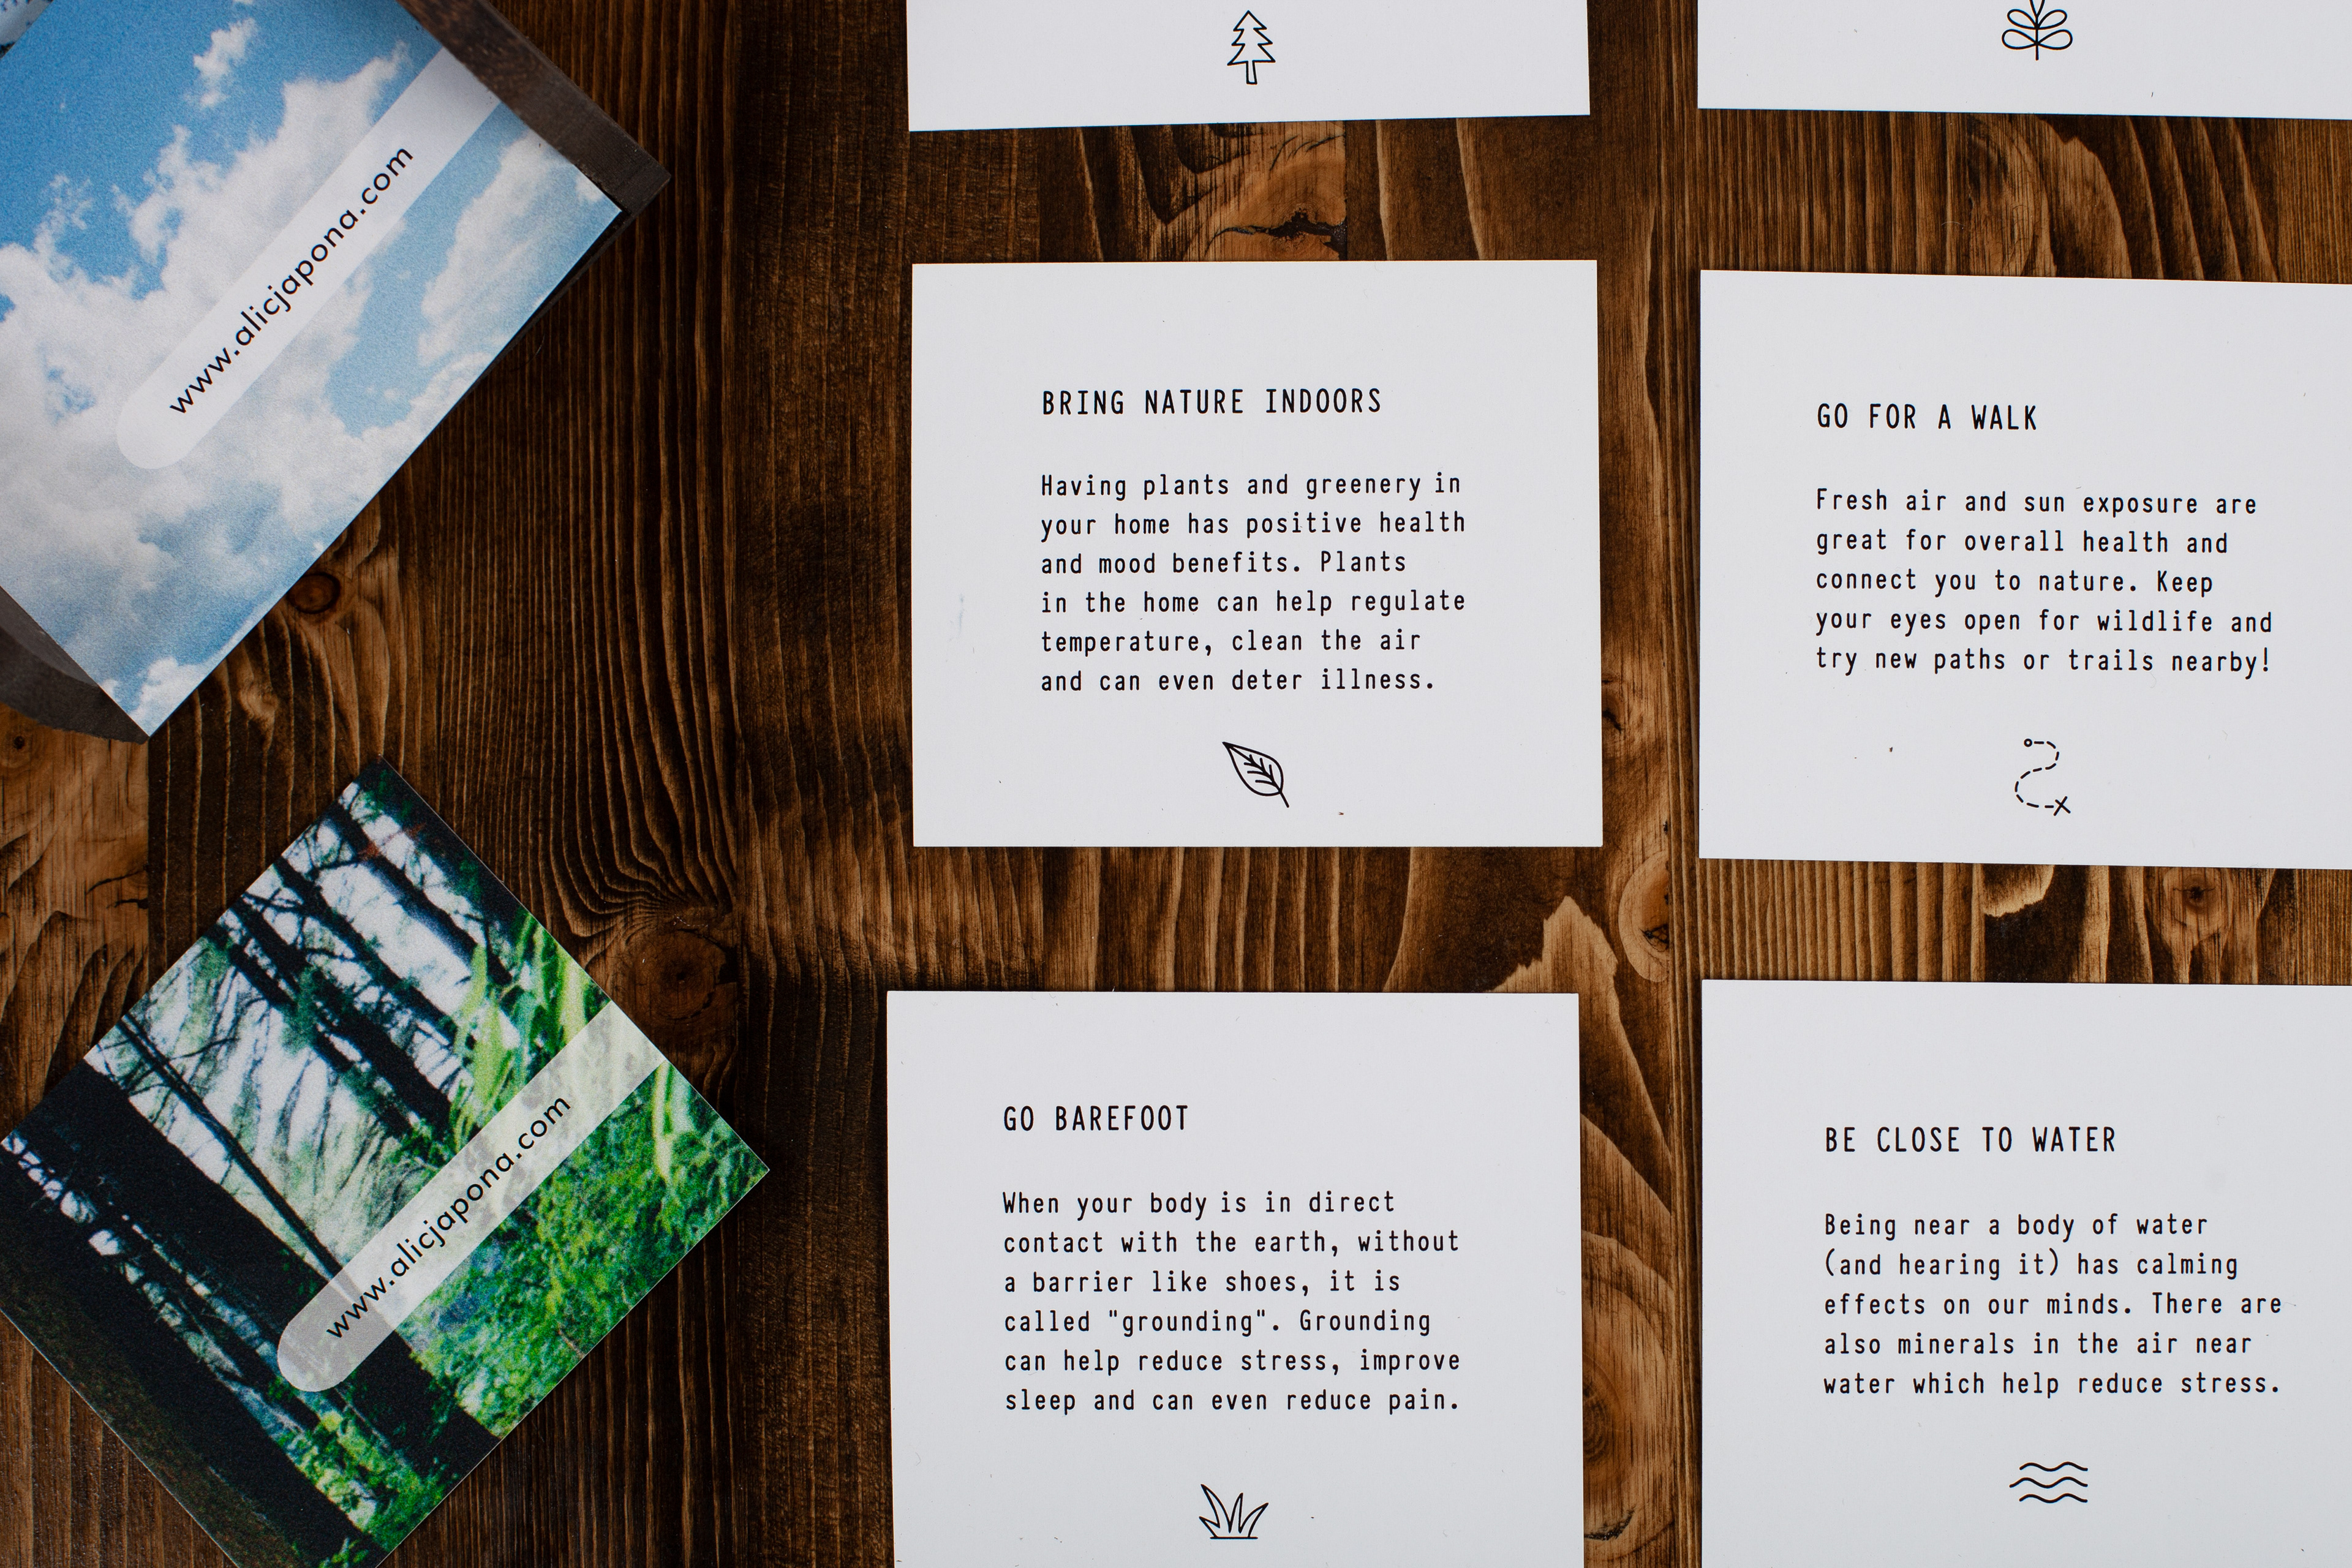 www.alicjapona.com
www.alicjapona.com
BRING NATURE INDOORS
Having plants and greenery in
your home has positive health
and mood benefits. Plants
in the home can help regulate
temperature, clean the air
and can even deter illness.
GO FOR A WALK
Fresh air and sun exposure are
great for overall health and
connect you to nature. Keep
your eyes open for wildlife and
try new paths or trails nearby!
GO BAREFOOT
When your body is in direct
contact with the earth, without
a barrier like shoes, it is
called "grounding". Grounding
can help reduce stress, improve
sleep and can even reduce pain.
BE CLOSE TO WATER
Being near a body of water
(and hearing it) has calming
effects on our minds. There are
also minerals in the air near
water which help reduce stress.